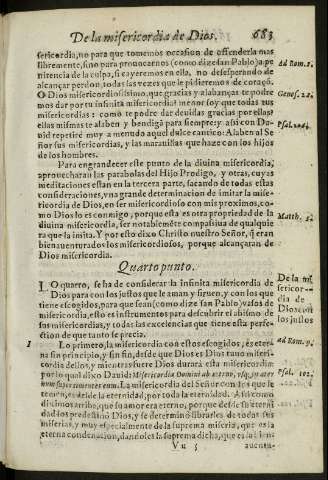 De la misericordia de Dios. 683
sericordia, no para que tomemos occasion de offenderla mas
libremente, sino para prouocarnos (como dize san Pablo) a pe
nitencia de la culpa, si cayeremos en ella, no desesperando de
alcançar perdon, todas las vezes que le pidieremos de coraçō.
O Dios misericordiosissimo, que gracias y alabanças te podre
mos dar por tu infinita misericordia? menor soy que todas tus
misericordias: como te podre dar deuidas gracias por ellas?
ellas mismas te alaben y bendigā para siempre: y assi con Da-
uid repetire muy a menudo aquel dulce cantico: Alaben al Se
ñor sus misericordias, y las marauillas que haze con los hijos
de los hombres.
Para engrandecer este punto de la diuina misericordia,
aprouecharan las parabolas del Hijo Prodigo, y otras, cuyas
meditaciones estan en la tercera parte, sacando de todas estas
consideraciones, vna grande determinacion de imitar la mise-
ricordia de Dios, en ser misericordioso con mis proximos, co-
mo Dios lo es conmigo, porque esta es otra propriedad de la
diuina misericordia, ser notablemēte compassiua de qualquie
ra que la imita. Y por esto dixo Christo nuestro Señor, q̄ eran
bienauenturados los misericordiosos, porque alcançaran de
Dios misericordia.
Quarto punto.
LO quarto, se ha de considerar la infinita misericordia de
Dios para con los justos que le aman y siruen, y con los que
tiene escogidos, para que sean (como dize san Pablo) vasos de
misericordia, esto es instrumentos para descubrir el abismo de
sus misericordias, y todas las excelencias que tiene esta perfe-
ction de que tanto se precia.
1 Lo primero, la misericordia con estos escogidos, es eter-
na sin principio, y sin fin, desde que Dios es Dios tuuo miseri-
cordia dellos, y mientras fuere Dios durara esta misericordia:
por lo qual dixo Dauid: Misericordia Domini ab æterno, vsq; in æter
num super timentes eum. La misericordia del Señor con los que le
temen, es desde la eternidad, por toda la eternidad. Assi como
diximos arriba, que su amor era eterno, porque desde su eterni
dad los predestinò Dios, y se determinò librarles de todas sus
miserias, y muy especialmente de la suprema miseria, que es la
eterna condenacion, dandoles la suprema dicha, que es la bien-
Vu 5 auentu-
Ad Rom. 2.
Genes. 32.
Matth. 5.
De la mi
sericor-
dia de
Dios con
los justos
ad Rom. 9.
Psal. 102.